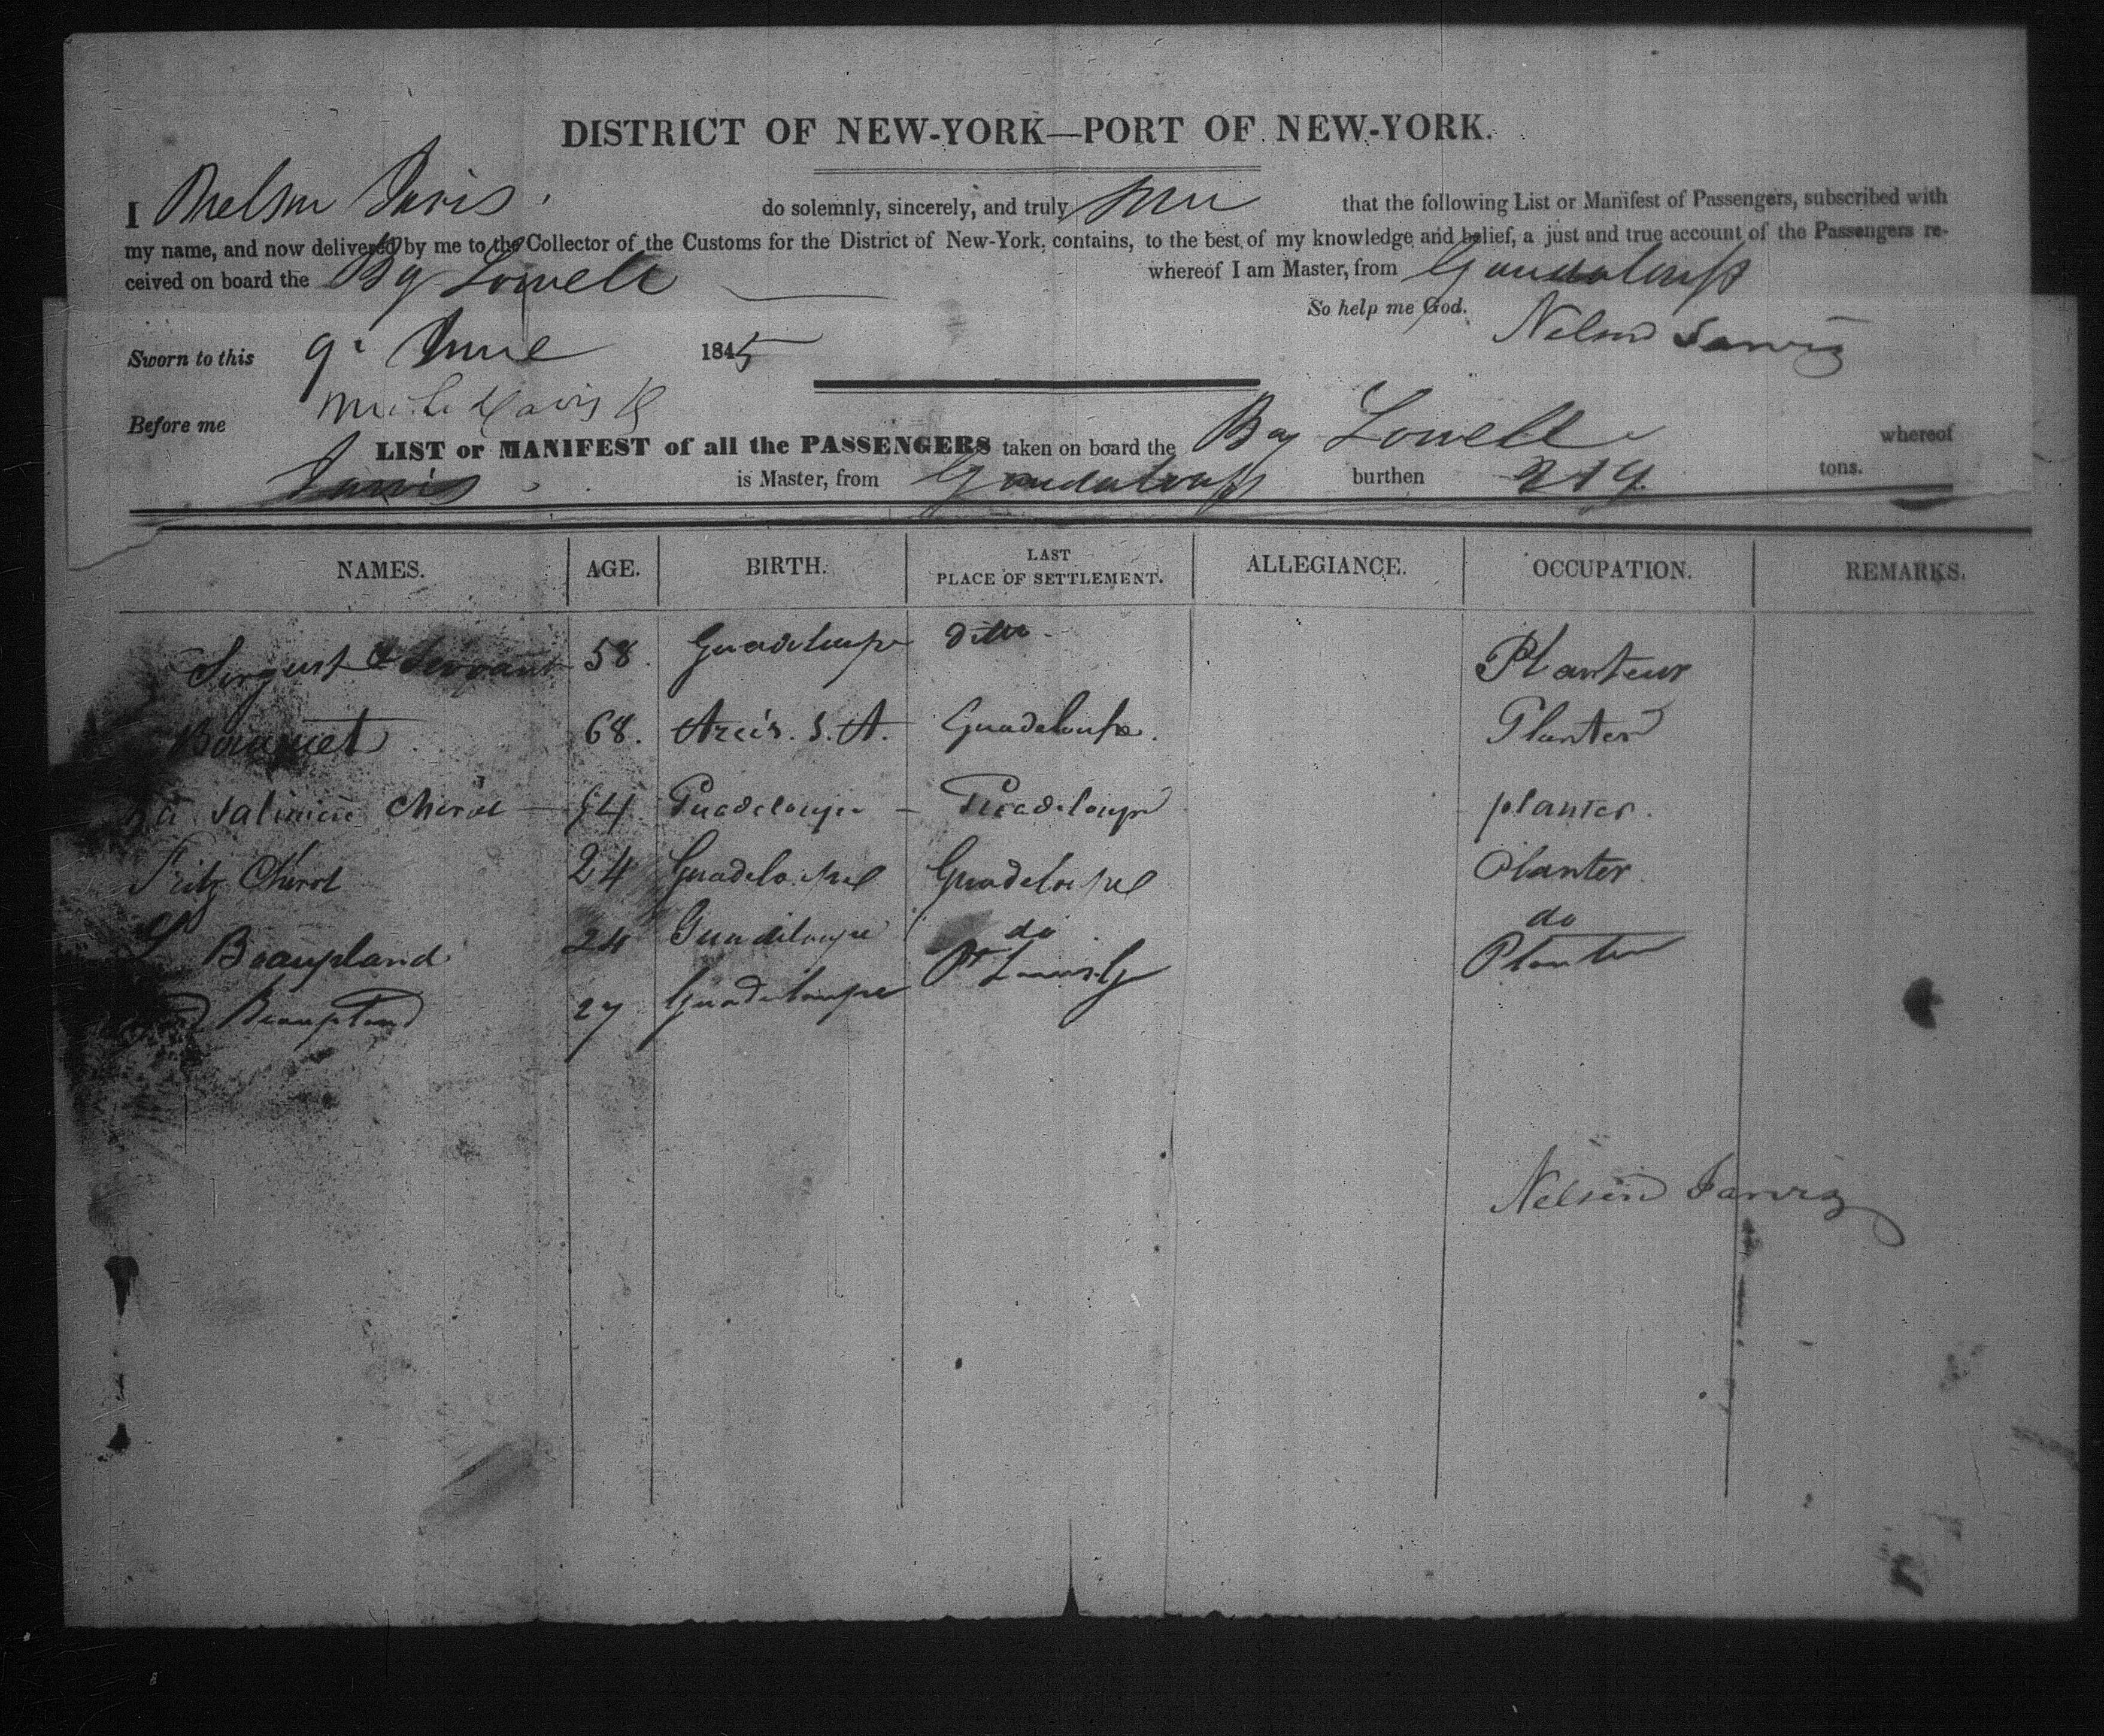 DISTRICT OF NEW-YORK—PORT OF NEW-YORK.
I Nelson Jarvis do solemnly, sincerely, and truly that the following List or Manifest of Passengers, subscribed with
my name, and now delivered by me to the Collector of the Customs for the District of New-York, contains, to the best of my knowledge and belief, a just and true account of the Passengers re-
ceived on board the Bg Lowell whereof I am Master, from Guadaloupe
So help me God.
Sworn to this 9 June 1845 Nelson Jarvis
Before me
LIST or MANIFEST of all the PASSENGERS taken on board the Bg Lowell whereof
Jarvis is Master, from Guadaloupe burthen 219 tons.
NAMES. AGE. BIRTH. LAST PLACE OF SETTLEMENT. ALLEGIANCE. OCCUPATION. REMARKS.
& Servant 58. Guadeloupe ditto Planteur
Bouquet 68. S. A. Guadeloupe. Planter
Cherot Guadeloupe Guadeloupe planter.
Fritz Cherot 24 Guadeloupe Guadeloupe Planter.
Beaupland 24 Guadeloupe do do
Beaupland 27 Guadeloupe Planter
Nelson Jarvis